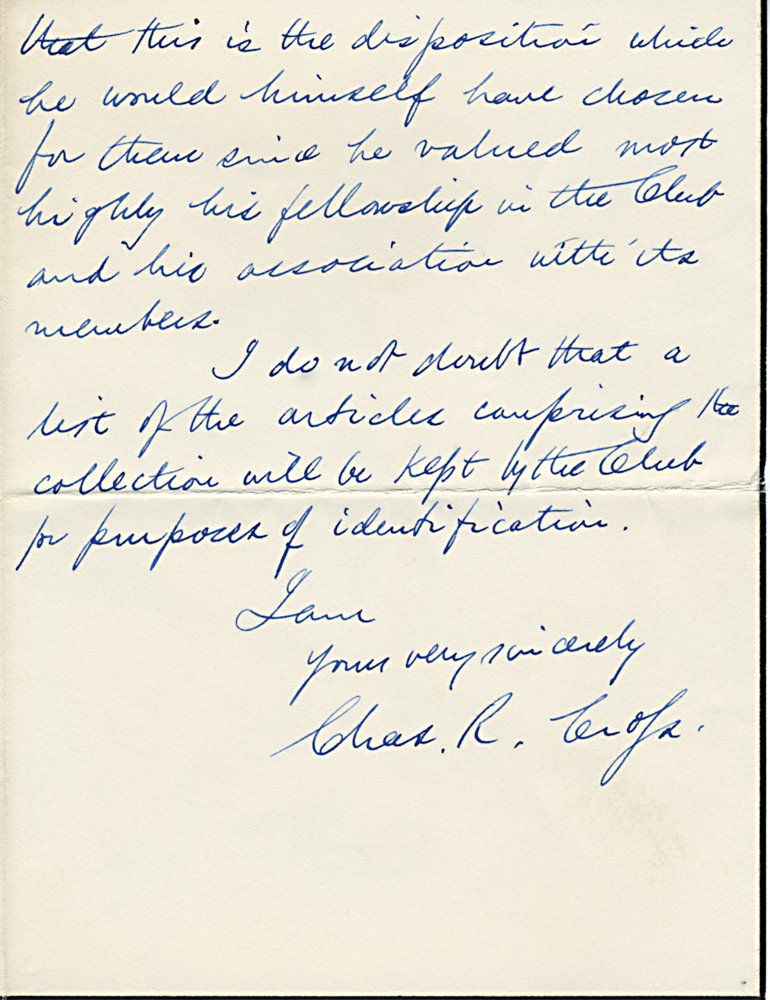 that this is the disposition which
he would himself have chosen
for them since he valued most
highly his fellowship in the Club
and his association with its
members.
I do not doubt that a
list of the articles comprising the
collection will be kept by the Club
for purposes of identification.
I am
Yours very sincerely
Chas. R. Cross.